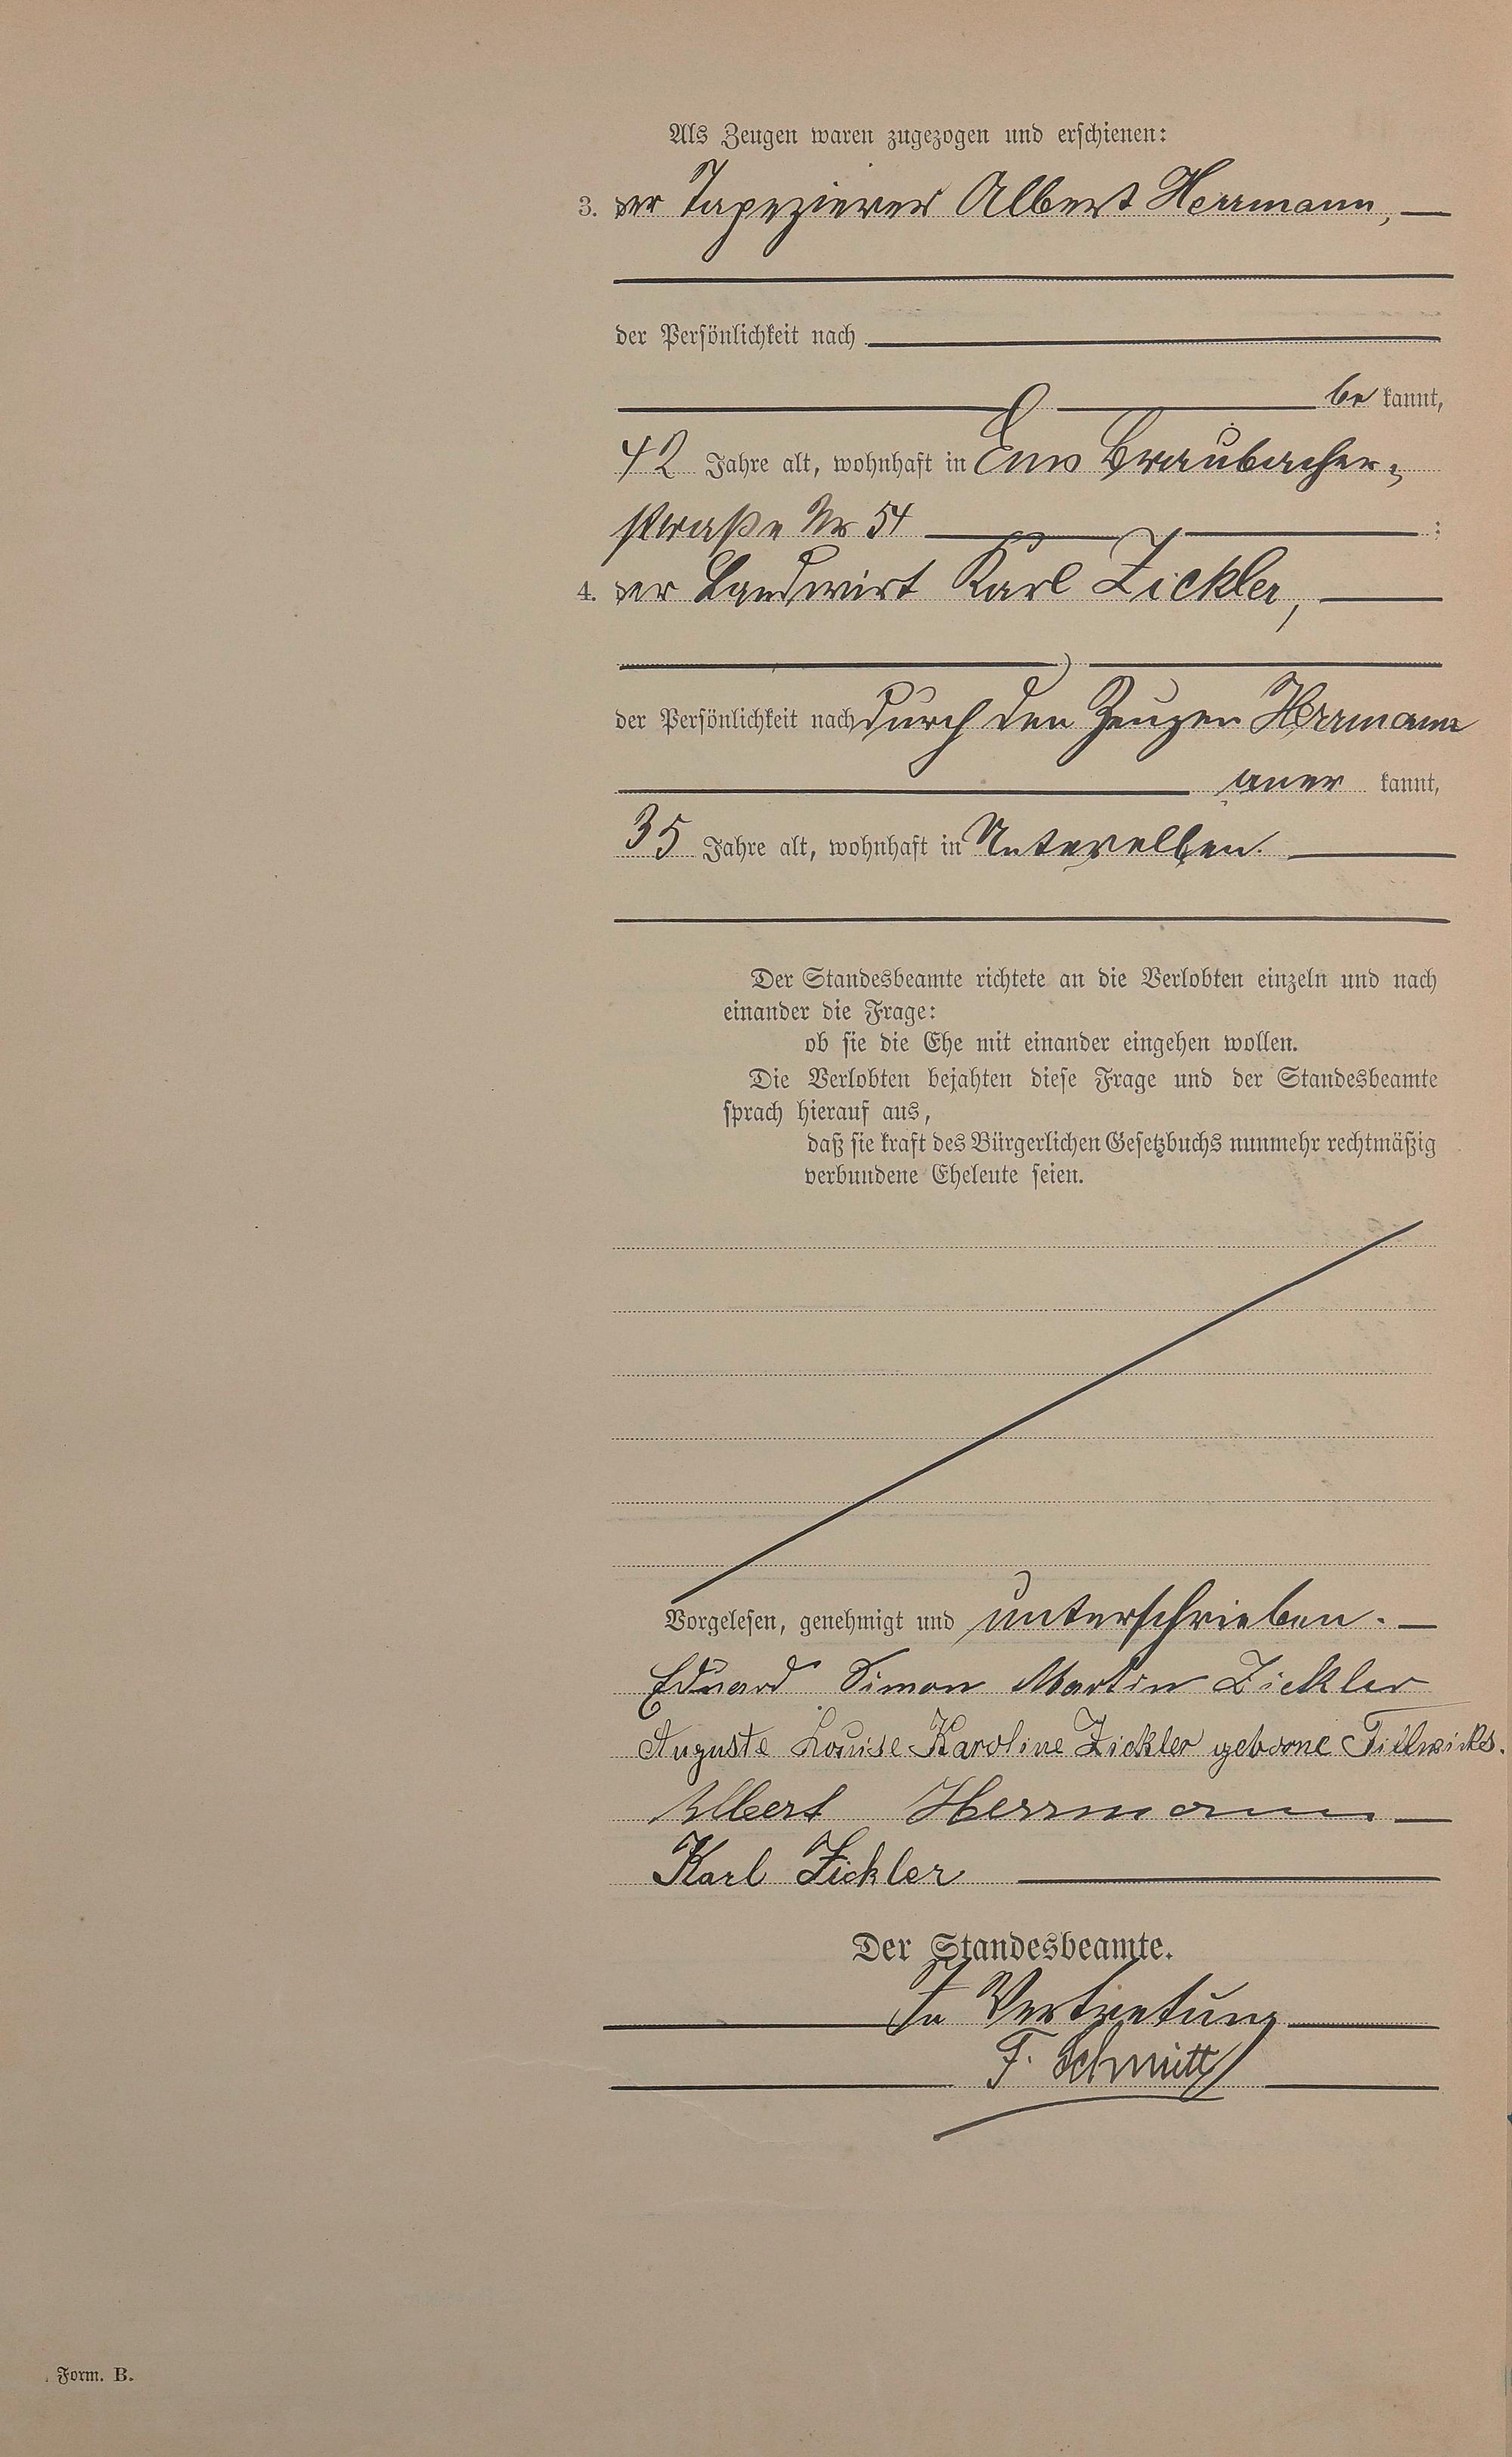 Als Zeugen waren zugezogen und erschienen:
3. der Tapezierer Albert Herrmann,
der Persönlichkeit nach
be kannt,
42 Jahre alt, wohnhaft in Ems Braubacher-
straße Nr 54 ;
4. der Landwirt Karl Zickler,
der Persönlichkeit nach durch den Zeugen Herrmann
aner kannt,
35 Jahre alt, wohnhaft in Unterellben.
Der Standesbeamte richtete an die Verlobten einzeln und nach
einander die Frage:
ob sie die Ehe mit einander eingehen wollen.
Die Verlobten bejahten diese Frage und der Standesbeamte
sprach hierauf aus,
daß sie kraft des Bürgerlichen Gesetzbuchs nunmehr rechtmäßig
verbundene Eheleute seien.
Vorgelesen, genehmigt und unterschrieben.
Eduard Simon Martin Zickler
Auguste Louise Karoline Zickler geborne
Albert Herrmann
Karl Zickler
Der Standesbeamte.
In Vertretung
F. Schmitt
Form. B.